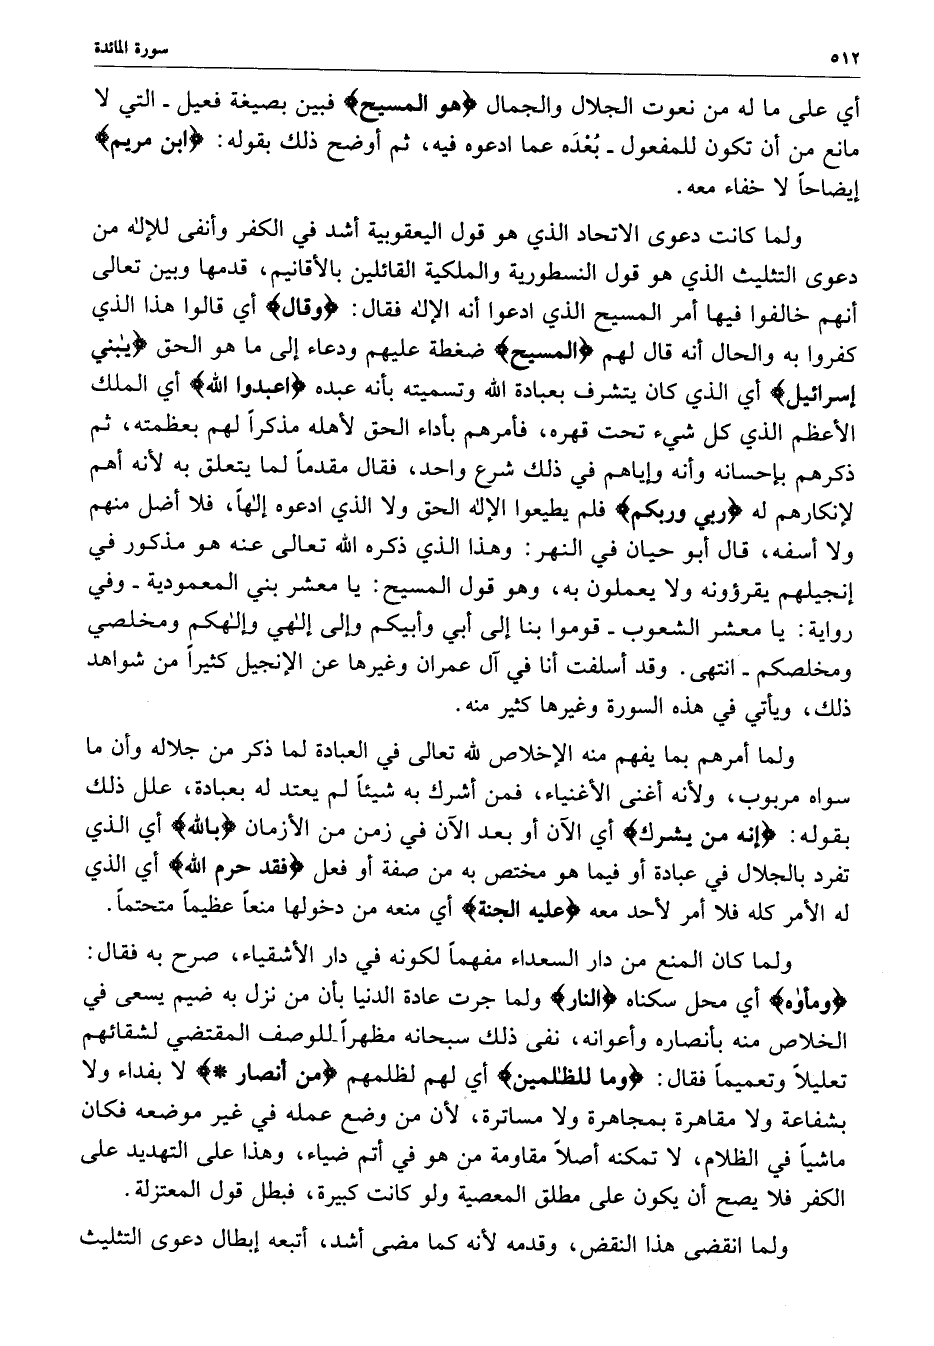 ٥١٢ سورة المائدة
أي على ما له من نعوت الجلال والجمال ﴿هو المسيح﴾ فبين بصيغة فعيل ـ التي لا
مانع من أن تكون للمفعول ـ بُعْدَه عما ادعوه فيه، ثم أوضح ذلك بقوله: ﴿ابن مريم﴾
إيضاحاً لا خفاء معه.
ولما كانت دعوى الاتحاد الذي هو قول اليعقوبية أشد في الكفر وأنفى للإلٰه من
دعوى التثليث الذي هو قول النسطورية والملكية القائلين بالأقانيم، قدمها وبين تعالى
أنهم خالفوا فيها أمر المسيح الذي ادعوا أنه الإلٰه فقال: ﴿وقال﴾ أي قالوا هذا الذي
كفروا به والحال أنه قال لهم ﴿المسيح﴾ ضغطة عليهم ودعاء إلى ما هو الحق ﴿يٰبني
إسرائيل﴾ أي الذي كان يتشرف بعبادة الله وتسميته بأنه عبده ﴿اعبدوا الله﴾ أي الملك
الأعظم الذي كل شيء تحت قهره، فأمرهم بأداء الحق لأهله مذكراً لهم بعظمته، ثم
ذكرهم بإحسانه وأنه وإياهم في ذلك شرع واحد، فقال مقدماً لما يتعلق به لأنه أهم
لإنكارهم له ﴿ربي وربكم﴾ فلم يطيعوا الإلٰه الحق ولا الذي ادعوه إلٰهاً، فلا أضل منهم
ولا أسفه، قال أبو حيان في النهر: وهذا الذي ذكره الله تعالى عنه هو مذكور في
إنجيلهم يقرؤونه ولا يعملون به، وهو قول المسيح: يا معشر بني المعمودية ـ وفي
رواية: يا معشر الشعوب ـ قوموا بنا إلى أبي وأبيكم وإلى إلٰهي وإلٰهكم ومخلصي
ومخلصكم ـ انتهى. وقد أسلفت أنا في آل عمران وغيرها عن الإنجيل كثيراً من شواهد
ذلك، ويأتي في هذه السورة وغيرها كثير منه.
ولما أمرهم بما يفهم منه الإخلاص لله تعالى في العبادة لما ذكر من جلاله وأن ما
سواه مربوب، ولأنه أغنى الأغنياء، فمن أشرك به شيئاً لم يعتد له بعبادة، علل ذلك
بقوله: ﴿إنه من يشرك﴾ أي الآن أو بعد الآن في زمن من الأزمان ﴿بالله﴾ أي الذي
تفرد بالجلال في عبادة أو فيما هو مختص به من صفة أو فعل ﴿فقد حرم الله﴾ أي الذي
له الأمر كله فلا أمر لأحد معه ﴿عليه الجنة﴾ أي منعه من دخولها منعاً عظيماً متحتماً.
ولما كان المنع من دار السعداء مفهماً لكونه في دار الأشقياء، صرح به فقال:
﴿ومأوٰه﴾ أي محل سكناه ﴿النار﴾ ولما جرت عادة الدنيا بأن من نزل به ضيم يسعى في
الخلاص منه بأنصاره وأعوانه، نفى ذلك سبحانه مظهراً للوصف المقتضي لشقائهم
تعليلاً وتعميماً فقال: ﴿وما للظٰلمين﴾ أي لهم لظلمهم ﴿من أنصار *﴾ لا بفداء ولا
بشفاعة ولا مقاهرة بمجاهرة ولا مساترة، لأن من وضع عمله في غير موضعه فكان
ماشياً في الظلام، لا تمكنه أصلاً مقاومة من هو في أتم ضياء، وهذا على التهديد على
الكفر فلا يصح أن يكون على مطلق المعصية ولو كانت كبيرة، فبطل قول المعتزلة.
ولما انقضى هذا النقض، وقدمه لأنه كما مضى أشد، أتبعه إبطال دعوى التثليث